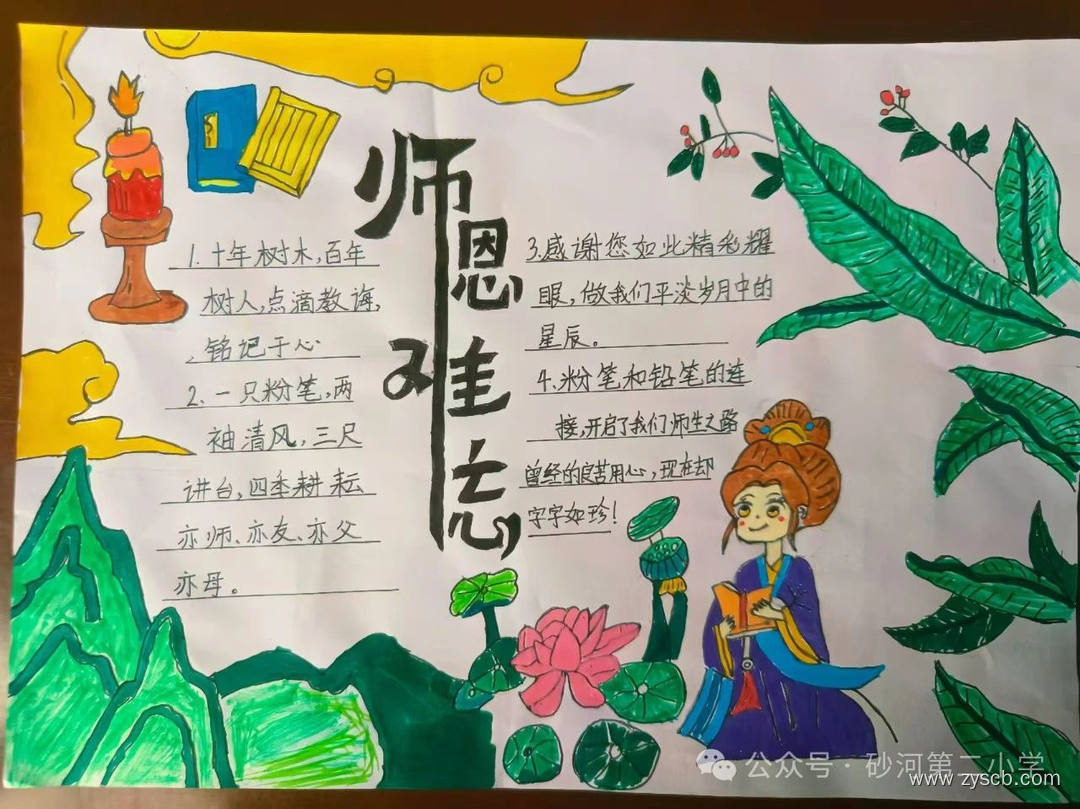 师恩难忘
1.十年树木,百年
树人,点滴教诲,
铭记于心
2.一只粉笔,两
袖清风,三尺
讲台,四季耕耘
亦师、亦友、亦父
亦母。
3.感谢您如此精彩耀
眼,做我们平淡岁月中的
星辰。
4.粉笔和铅笔的连
接,开启了我们师生之路
曾经的良苦用心,现在却
字字如珍!
公众号·砂河第二小学
www.zyscb.com